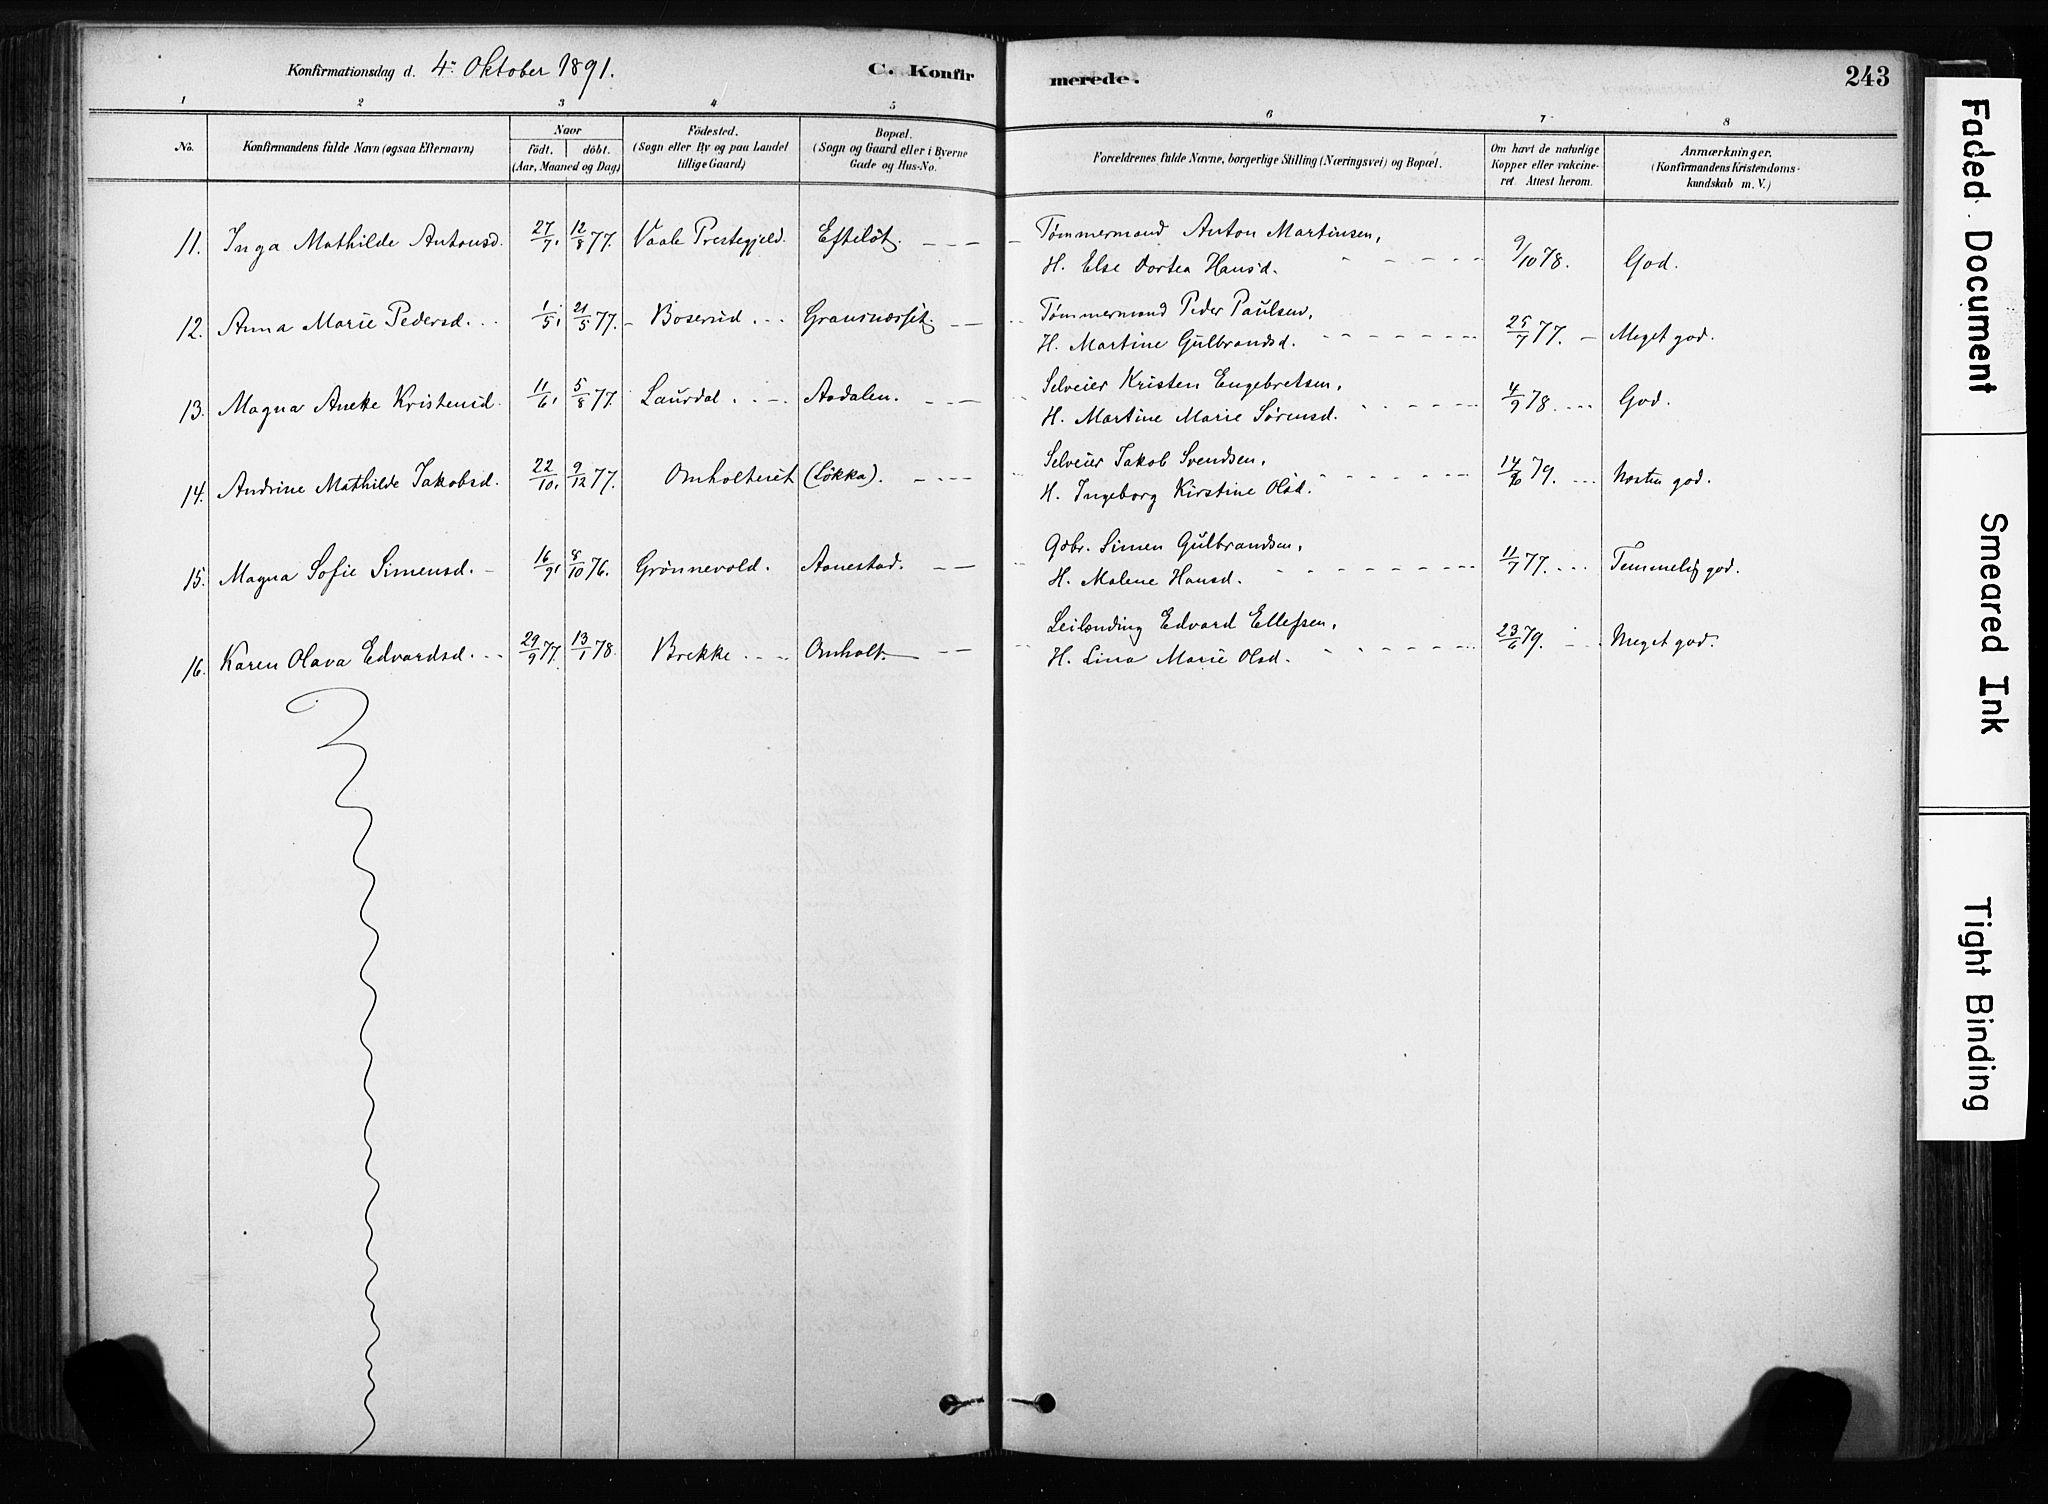 Konfirmationsdag d. 4de Oktober 1891. C. Konfirmerede. 243
1 2 3 4 5 6 7 8
No.
Konfirmandens fulde Navn (ogsaa Efternavn)
Naar
født. døbt.
(Aar, Maaned og Dag)
Fødested.
(Sogn eller By og paa Landet
tillige Gaard)
Bopæl.
(Sogn og Gaard eller i Byerne
Gade og Hus-No.
Forældrenes fulde Navne, borgerlige Stilling (Næringsvei) og Bopæl.
Om havt de naturlige
Kopper eller vakcine-
ret. Attest herom.
Anmærkninger.
(Konfirmandens Kristendoms-
kundskab m. V.)
11. Inga Mathilde Antonsd. 27/7, 12/8 77. Vaale Prestegjeld. Efteløt. Tømmermand Anton Martinsen,
H. Else Dortea Hansd. 9/10 78. God.
12. Anna Marie Pedersd. 1/5, 21/5 77. Boserud. Gransnæsset. Tømmermand Peder Paulsen,
H. Martine Gulbrandsd. 25/7 77. Meget god.
13. Magna Anette Kristensd. 11/6, 5/8 77. Laurdal. Aadalen. Selveier Kristen Engebretsen,
H. Martine Marie Sørensd. 4/9 78. God.
14. Andrine Mathilde Jakobsd. 22/10, 9/12 77. Omholteiet (Løkka). Selveier Jakob Svendsen,
H. Ingeborg Kirstine Olsd. 79. Næsten god.
15. Magna Sofie Simensd. 16/9, 8/10 76. Grønnevold. Aanestad. Gdbr. Simen Gulbrandsen,
H. Malene Hansd. 11/7 77. Temmelig god.
16. Karen Olava Edvardsd. 29/9 77. 13/1 78. Brekke. Omholt. Leilænding Edvard Ellefsen,
H. Lina Marie Olsd. 23/6 79. Meget god.
Faded Document
Smeared Ink
Tight Binding